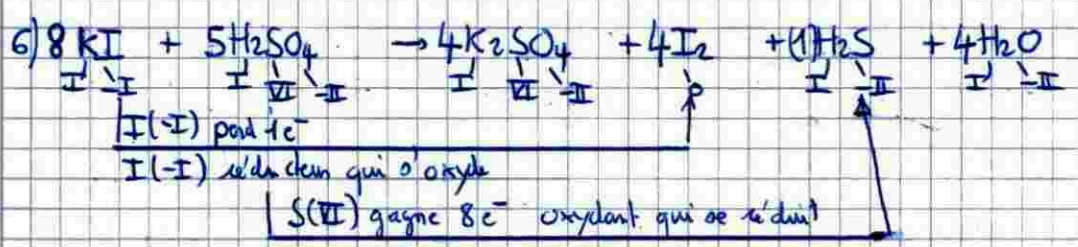 6) 8 KI + 5H₂SO₄ → 4K₂SO₄ + 4I₂ + (1)H₂S + 4H₂O
I -I I VI -II I VI -II 0 I -II I -II
I(-I) perd 1e⁻
I(-I) réducteur qui s'oxyde
S(VI) gagne 8e⁻ oxydant qui se réduit